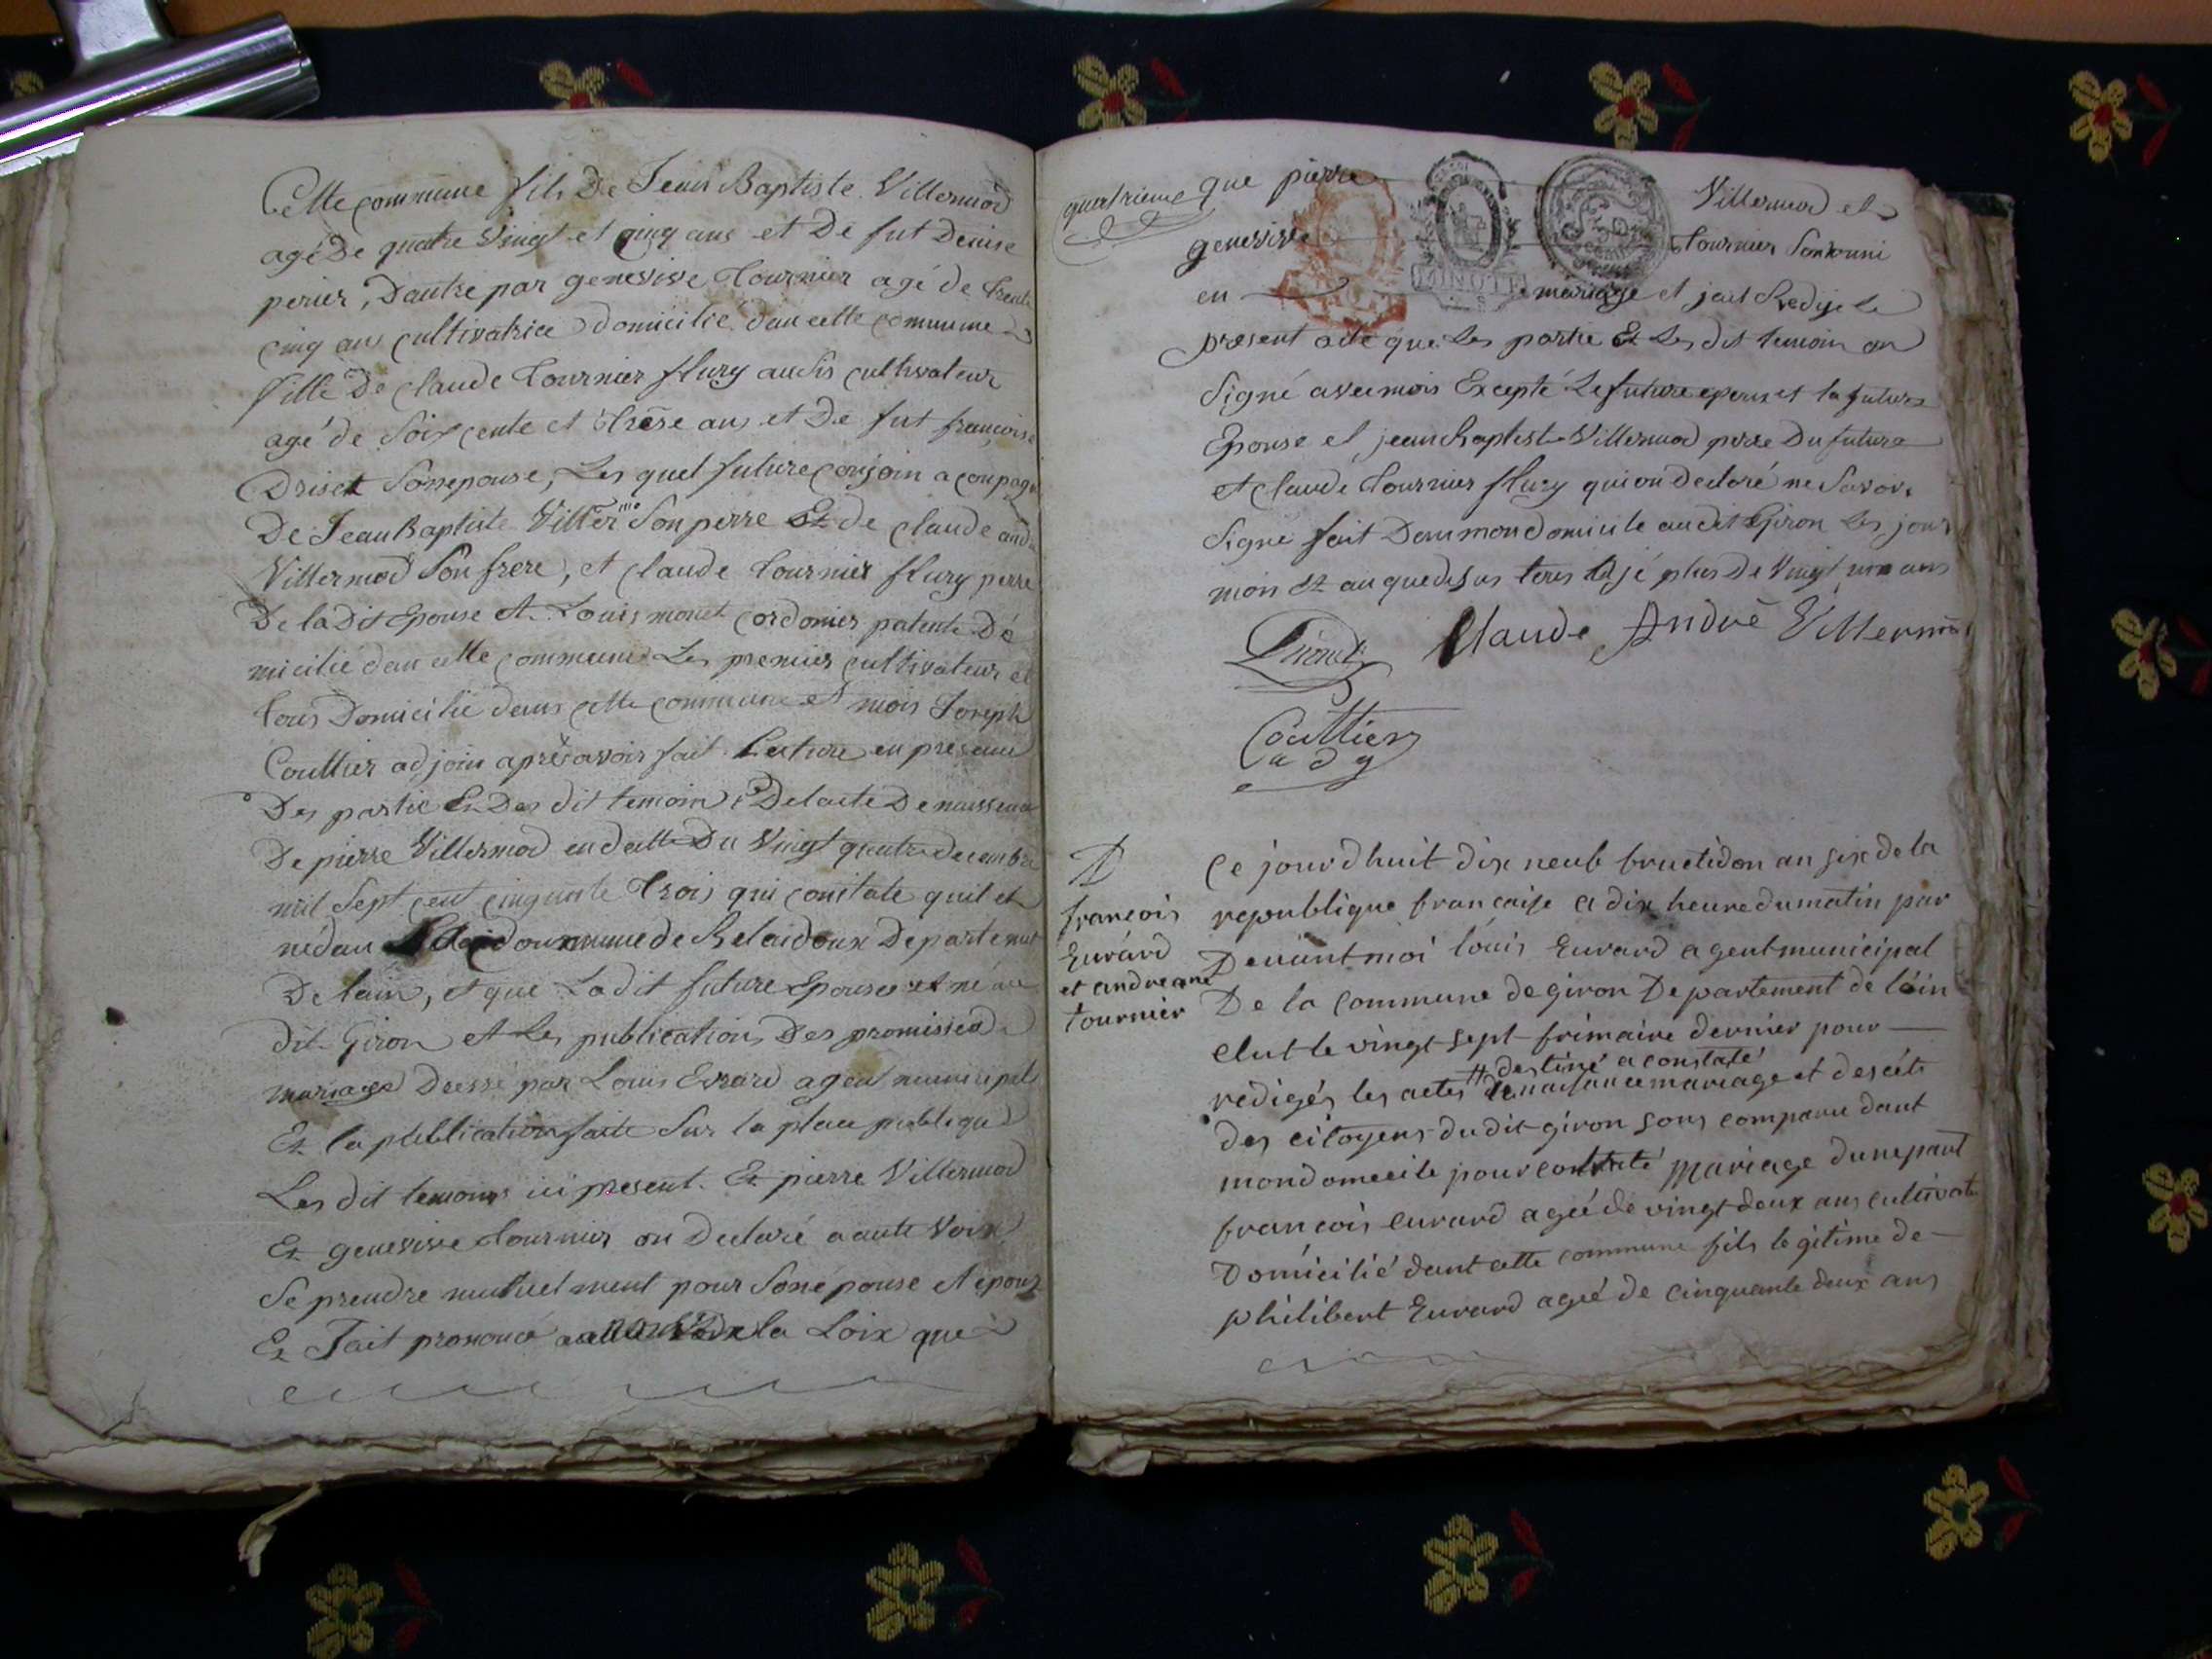 Cette commune fils De Jean Baptiste Villermod
agé De quatre Vingt et cinq ans et De fut Denise
perier, D'autre par genevive Tournier agé de trente
cinq ans cultivatrice domicilie dan cette commune
fille De Claude Tournier flury audis cultivateur
agé de Soixcente et trese ans et De fut françoise
Driset Sonnepouse, Les quel future conjoin a conpagn
De Jean Baptiste Viller mo Son perre Et de claude andr
Villermod Son frere, et claude Tournier flury perre
De la Dit Epouse et Louis monet Cordonier patenté Do
micilié dan cette commune Les premier cultivateur et
tous Domicilie dans cette commune et mois Joseph
Couttier adjoin apres avoir fait Lecture en presence
Des partie Et Des dit temoin De lacte De naissence
De pierre Villermod en datte Du Vingt quatre decembre
mil Sept cent cinquante trois qui constate quil et
né dan commune de Belaidoux Departement
De lain, et que Ladit future Epouse et né au
dit Giron et Les publication Des promisse de
mariage Dressé par Louis Evrard agen municipal
Et la publication faite Sur la place publique
Les dit temoins ici present. Et pierre Villermod
Et genevive Tournier on Declaré a aute Voix
Se prendre mutuelment pour Sonepouse et epoux
Et Jait prononcé la Loix que
quatrieme que pierre Villermod et
genevive Tournier Son tunni
en mariage et jait Redije le
present acte que Les partie Et Les dit temoin on
Signé avec mois Excepté Le future epoux et la future
Epouse et jean Baptiste Villermod perre Du future
et Claude Tournier flury qui on Declaré ne Savoir
Signe fait Dans mon domicile audit Giron Les jour
mois et an que desus tous agé plus De Vingt un ans
Claude André Villermo
Couttier
adj
françois
Eurard
et andreane
tournier
Ce jourdhuit dix neub bructidor an six de la
republique francaise a dix heure du matin par
Devant moi louis Eurard agent municipal
De la commune de giron Departement de lain
elut le vingt sept frimaire dernier pour
# destiné a constaté
redigés les actes # de naisance mariage et decéts
des citoyens dudit giron sons comparu dant
mon domecile pour constaté mariage dune part
francois eurard ageé de vingt deux ans cultivat
Domicilié dant cette commune fils legitime de
philibert Eurard ageé de cinquante deux ans